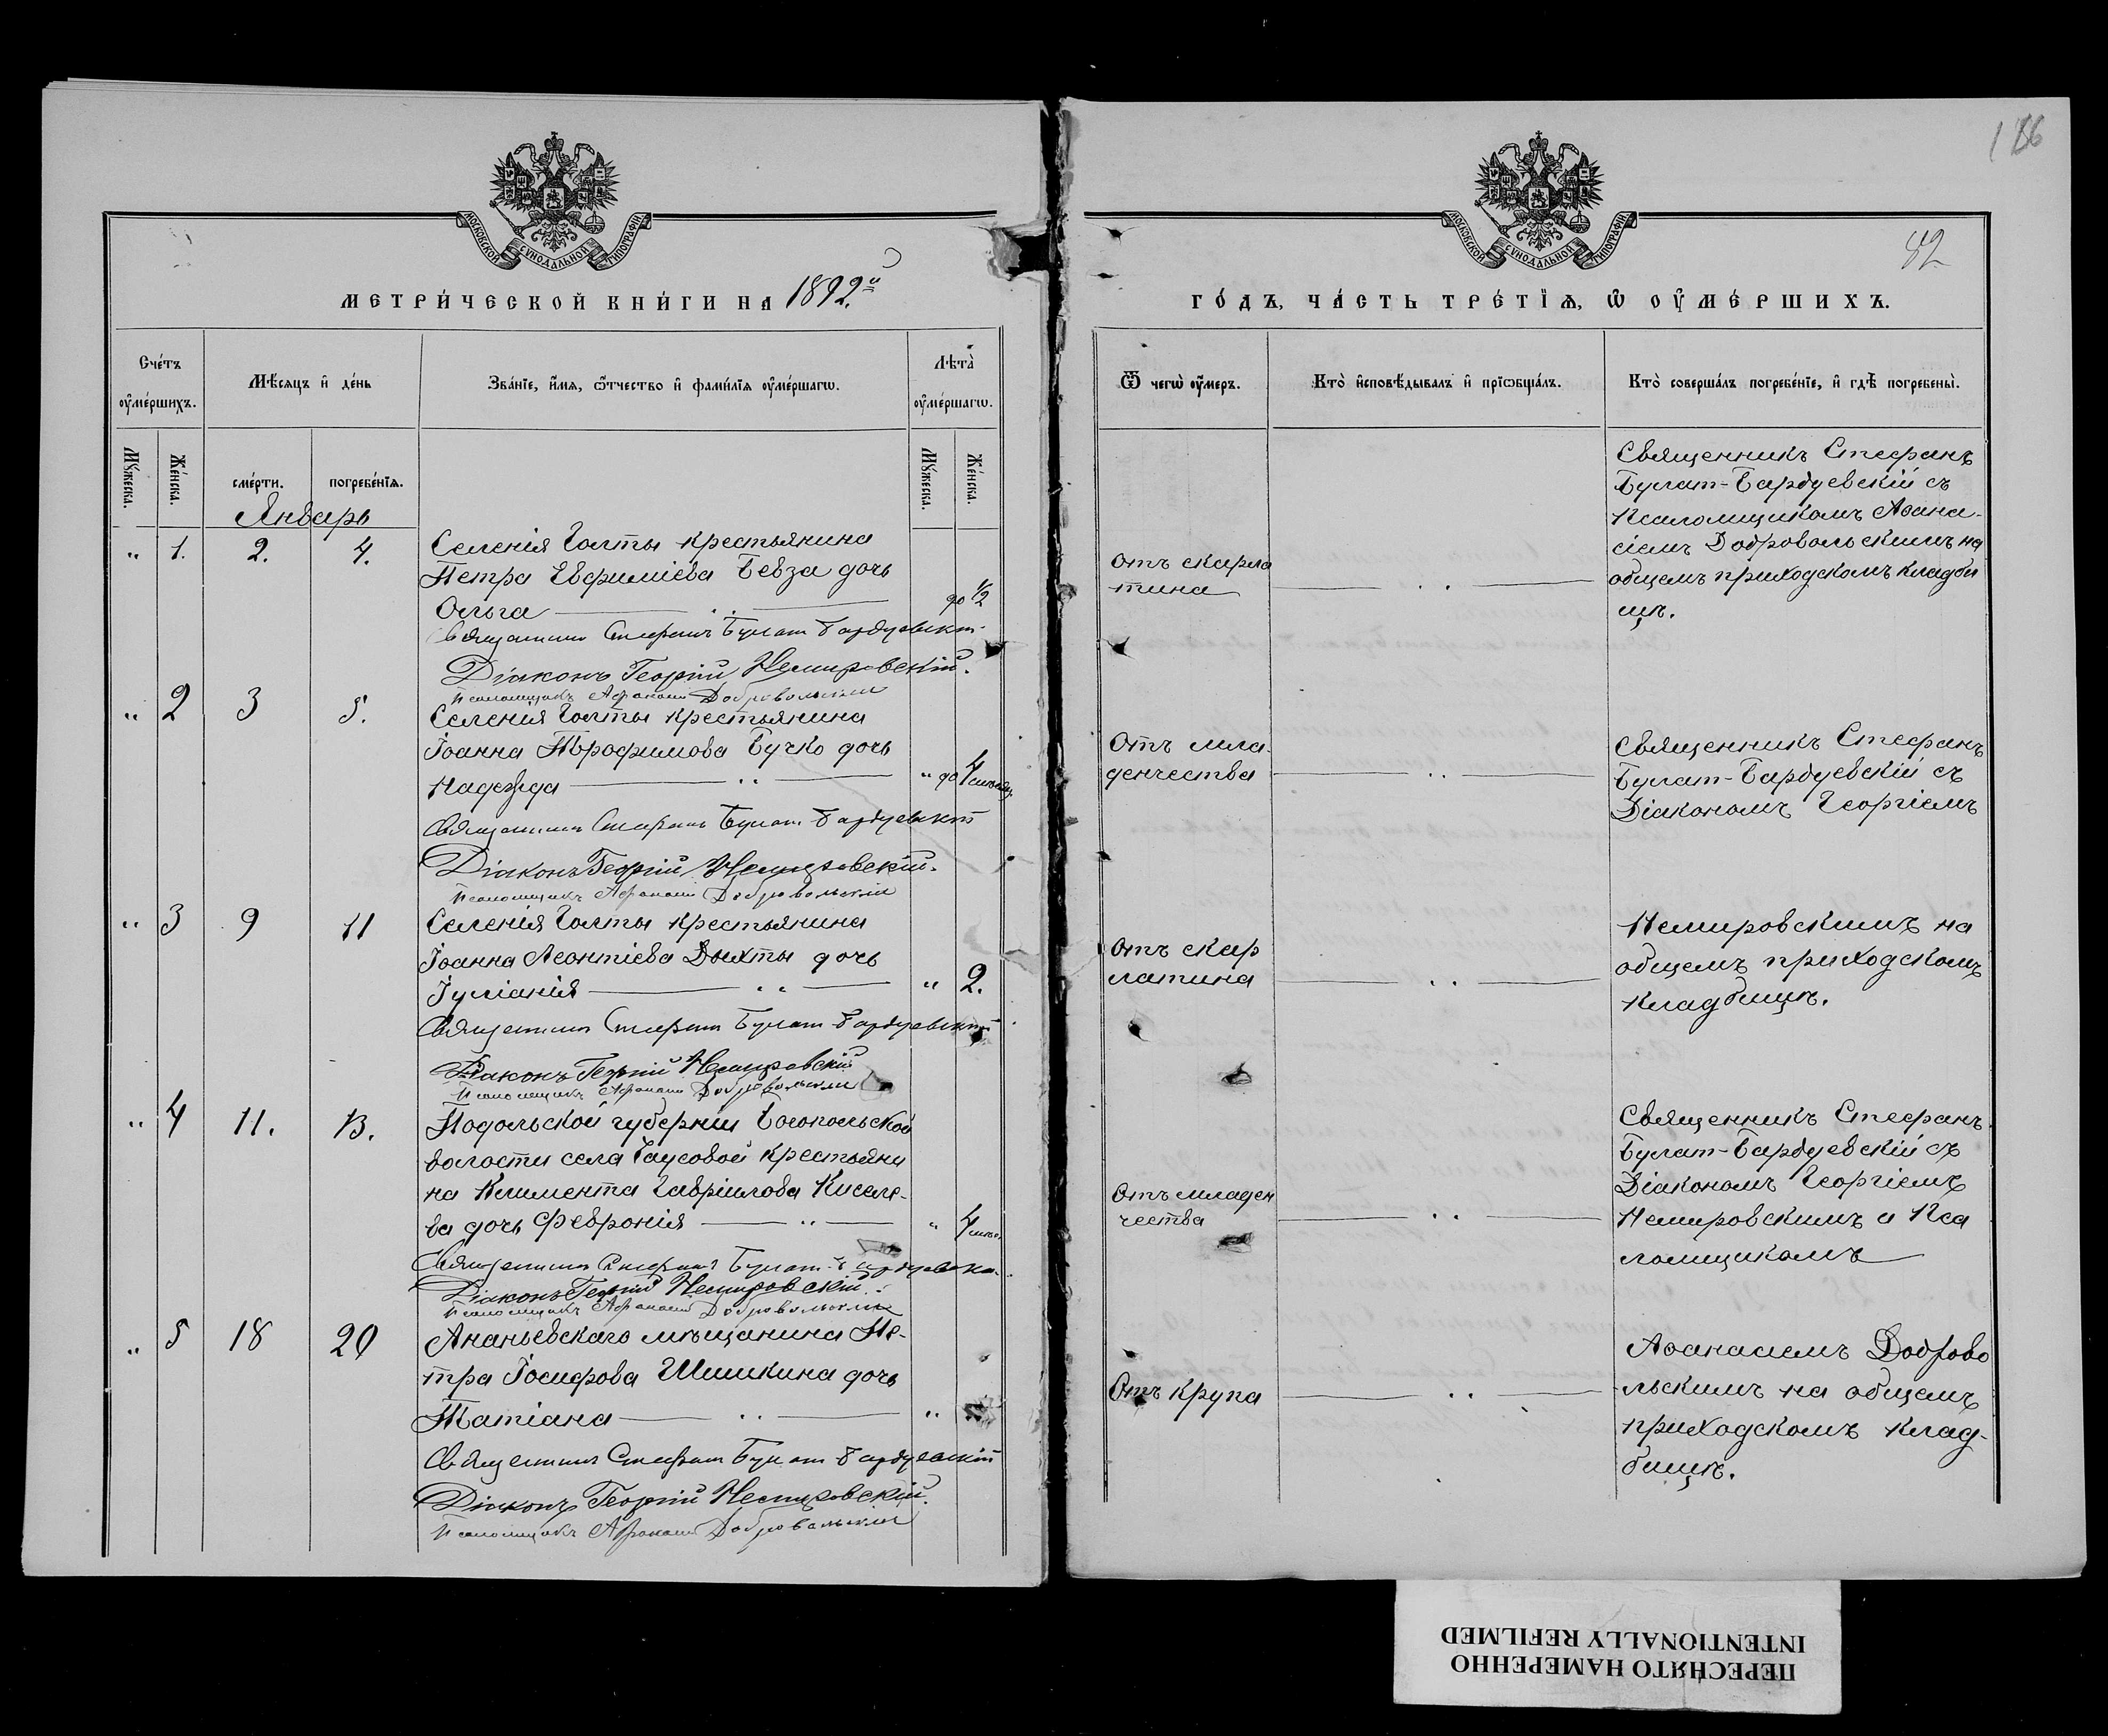 186
82
МОСКОВСКОЙ СѴНОДАЛЬНОЙ ТИПОГРАФІИ
МОСКОВСКОЙ СѴНОДАЛЬНОЙ ТИПОГРАФІИ
МЕТРИ́ЧЕСКОЙ КНИ́ГИ НА 1892.й
ГО́ДЪ, ЧА́СТЬ ТРЕ́ТЇѦ, Ѡ ОУ҆МЕ́РШИХЪ.
Сче́тъ оу҆ме́ршихъ.
Мѣ́сяцъ и҆ де́нь
Зва́нїе, и҆́мя, ѻ҆́тчество и҆ фами́лїя оу҆ме́ршагѡ.
Лѣ́та оу҆ме́ршагѡ.
Ѿ чегѡ̀ оу҆́меръ.
Кто̀ и҆сповѣ́дывалъ и҆ прїѡбща́лъ.
Кто̀ соверша́лъ погребе́нїе, и҆ гдѣ̀ погребены̀.
Мꙋ́жеска.
Же́нска.
сме́рти.
погребе́нїя.
Мꙋ́жеска.
Же́нска.
Январь
„ 1. 2. 4.
Селенія Голты крестьянина
Петра Евфиміева Бевза дочь
Ольга — „ — до 1/2
Священникъ Стефанъ Булат-Бардуевскій
Діаконъ Георгій Немировскій.
Псаломщикъ Афанасій Добровольскій
Отъ скарла
тина — „ —
Священникъ Стефанъ
Булат-Бардуевскій съ
Псаломщикомъ Аѳана-
сіемъ Добровольскимъ на
общемъ приходскомъ кладби
щѣ.
„ 2 3 5.
Селенія Голты крестьянина
Іоанна Трофимова Бучко дочь
Надежда — „ — „ до 4 мѣсяц
Священникъ Стефанъ Булат-Бардуевскій
Діаконъ Георгій Немировскій.
Псаломщикъ Афанасій Добровольскій
Отъ мла-
денчества — „ —
Священникъ Стефанъ
Булат-Бардуевскій съ
Діакономъ Георгіемъ
„ 3 9 11
Селенія Голты крестьянина
Іоанна Леонтіева Дихты дочь
Іуліанія — „ — „ 2.
Священникъ Стефанъ Булат-Бардуевскій
Діаконъ Георгій Немировскій
Псаломщикъ Афанасій Добровольскій
Отъ скар
латина — „ —
Немировскимъ на
общемъ приходскомъ
кладбищѣ.
„ 4 11. 13.
Подольской губерніи Богопольской
волости села крестьяни
на Климента Гавріилова Киселе-
ва дочь Февронія — „ — „ 4 мѣс.
Священникъ Стефанъ Булат-Бардуевскій
Діаконъ Георгій Немировскій.
Псаломщикъ Афанасій Добровольскій
Отъ младен
чества — „ —
Священникъ Стефанъ
Булат-Бардуевскій съ
Діакономъ Георгіемъ
Немировскимъ и Пса
ломщикомъ
„ 5 18 20
Ананьевскаго мѣщанина Пе-
тра Іосифова Шишкина дочь
Татіана — „ — „
Священникъ Стефанъ Булат-Бардуевскій
Діаконъ Георгій Немировскій.
Псаломщикъ Афанасій Добровольскій
Отъ крупа — „ —
Аѳанасіемъ Доброво
льскимъ на общемъ
приходскомъ клад-
бищѣ.
ПЕРЕСНЯТО НАМЕРЕННО
INTENTIONALLY REFILMED